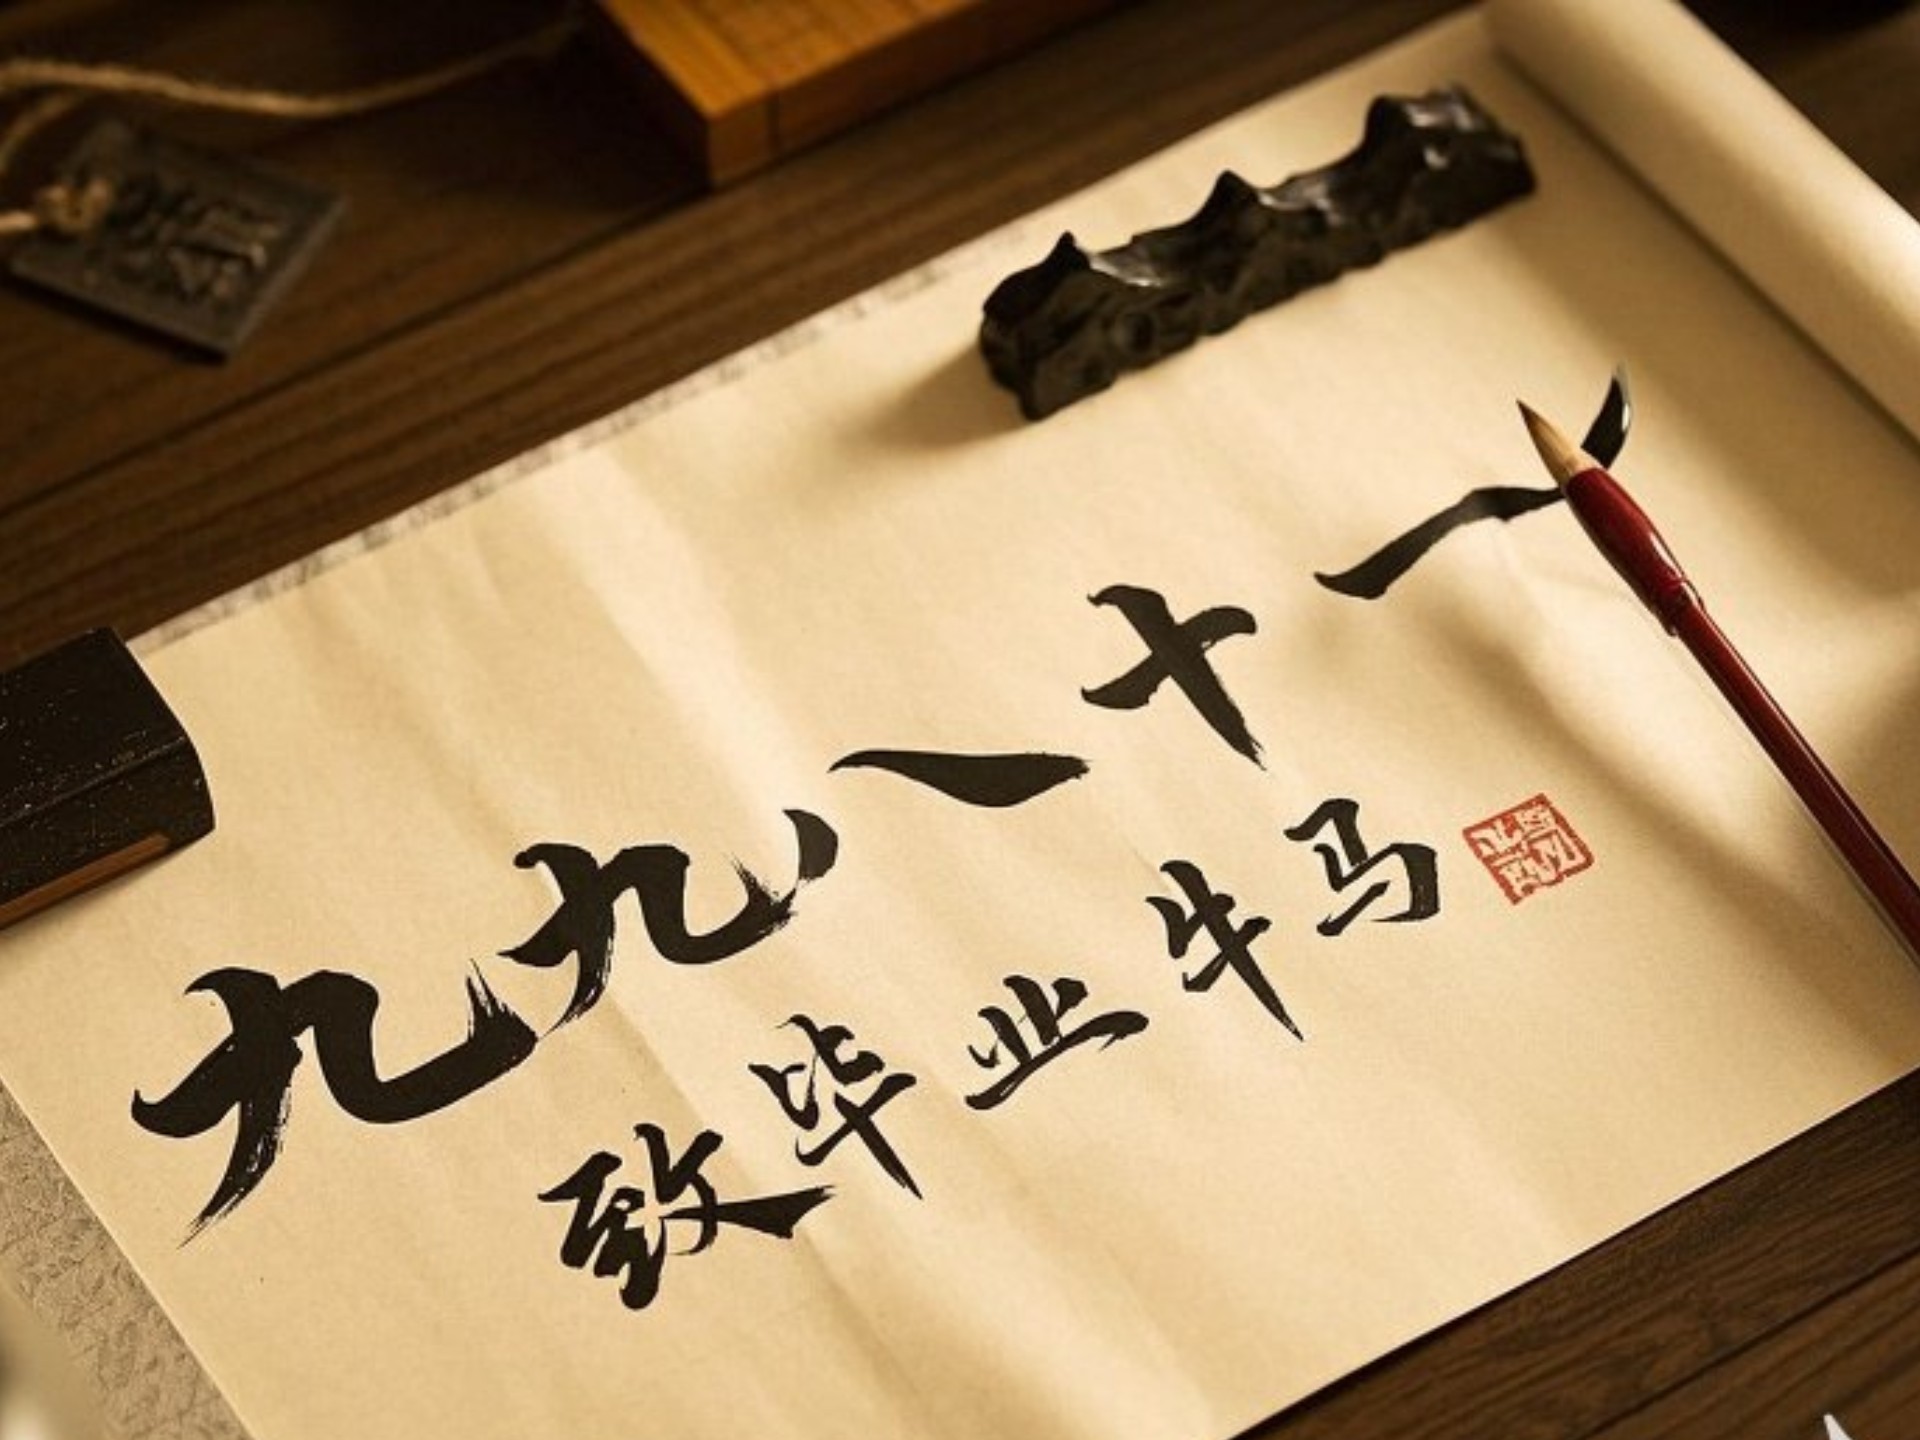 九九八十一
致毕业牛马